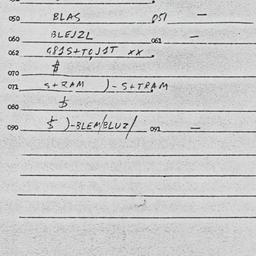 050 BLAS 051 —
060 BLEJZL 061 —
062 xx
070 $
071 S+RAM )-S+TRAM
080 $
090 $ )-BLEM/BLUZ/ 091 —